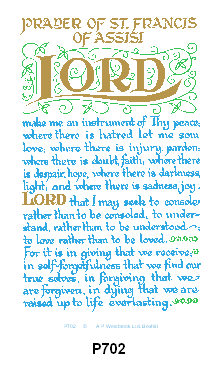 PRAYER OF ST. FRANCIS
OF ASSISI
LORD
make me an instrument of Thy peace;
where there is hatred let me sow
love; where there is injury, pardon;
where there is doubt, faith; where there
is despair, hope; where there is darkness,
light, and where there is sadness, joy.
LORD that I may seek to console
rather than to be consoled, to under-
stand, rather than to be understood
to love rather than to be loved.
For it is in giving that we receive,
in self-forgetfulness that we find our
true selves, in forgiving that we
are forgiven, in dying that we are
raised up to life everlasting.
P702 © A P Westbrook Ltd
P702